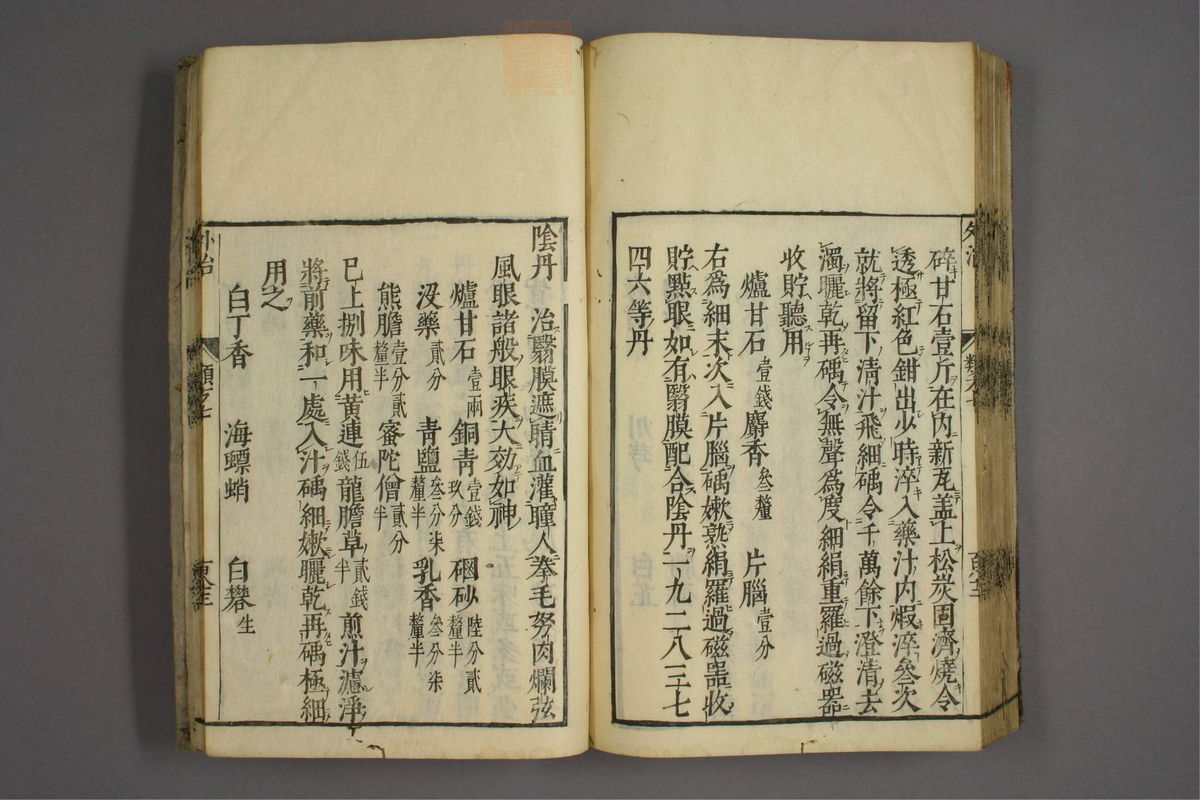 碎甘石壹斤在內新瓦盖上松炭固濟燒令
透極紅色鉗出少時淬入藥汁內煆淬叁次
就將留下清汁飛細碯令千萬餘下澄清去
濁曬乾再碯令無聲爲度細絹重羅過磁器
收貯聽用
爐甘石壹錢 麝香叁釐 片腦壹分
右爲細末次入片腦碯嫩熟絹羅過磁噐收
貯點眼如有翳膜配合陰丹一九二八三七
四六等丹
陰丹 治翳膜遮睛血灌瞳人拳毛努肉爛弦
風眼諸般眼疾大効如神
爐甘石壹兩 銅靑壹錢玖分 硇砂陸分貳釐半
沒藥貳分 靑鹽叁分柒釐半 乳香叁分柒釐半
熊膽壹分貳釐半 蜜陀僧貳分半
已上捌味用黃連伍錢龍膽草貳錢半煎汁濾淨
將前藥和一處入汁碯細嫩曬乾再碯極細
用之
白丁香 海螵蛸 白礬生